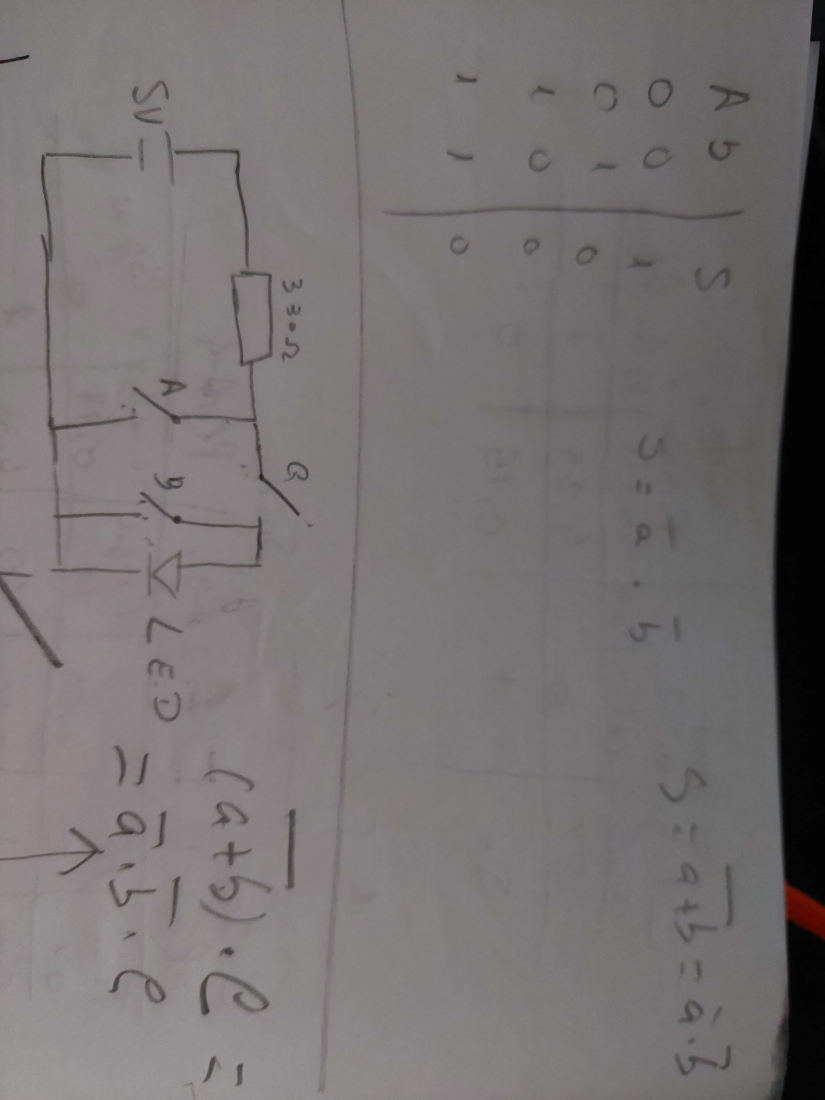 A b | S
0 0 | 1
0 1 | 0
1 0 | 0
1 1 | 0
S = a̅ . b̅
S = a̅+̅b̅ = a̅.b̅
330Ω
5V
A
B
LED
(a̅+̅b̅) . C =
= a̅ . b̅ . C